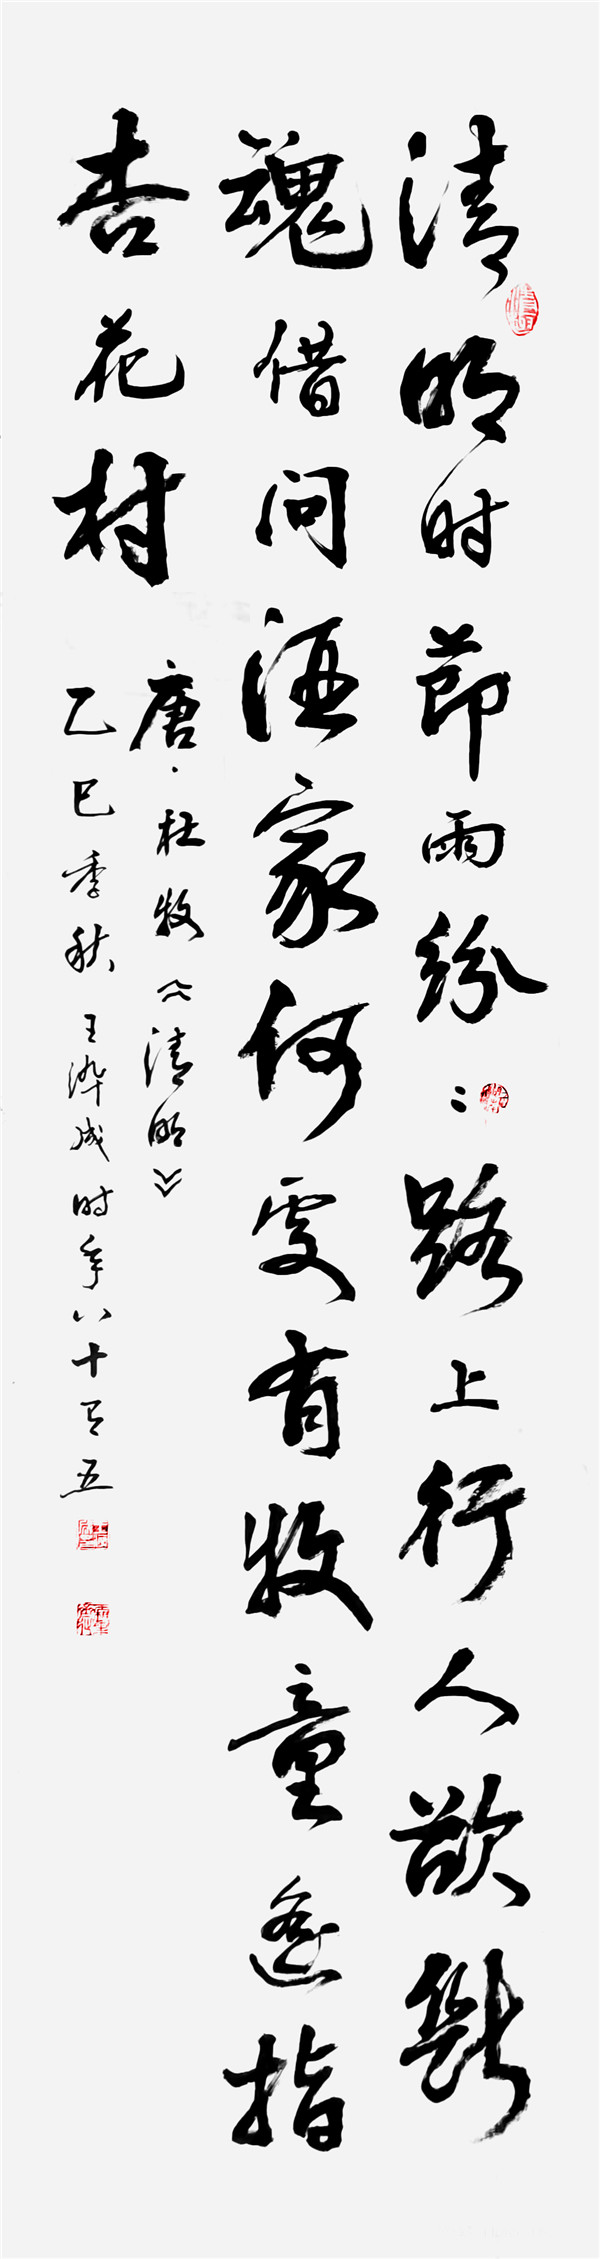 清明时节雨纷〻路上行人欲斷
魂借问酒家何处有牧童遥指
杏花村
唐·杜牧《清明》
乙巳季秋 王沛成 时年八十又五